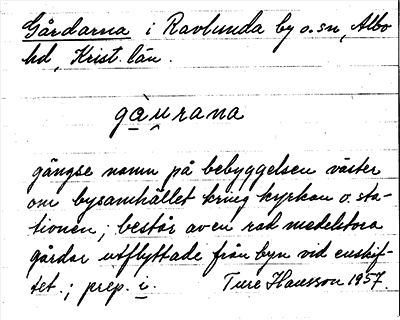 Gårdarna i Ravlunda by o. sn, Albo
hd, Krist. län.
gȧu̯rana
gängse namn på bebyggelsen väster
om bysamhället kring kyrkan o. sta-
tionen; består av en rad medelstora
gårdar utflyttade från byn vid enskif-
tet.; prep. i. Ture Hansson 1957.